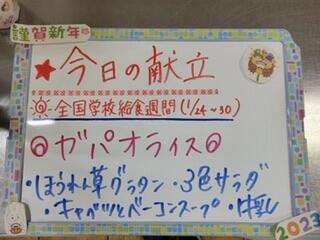 謹賀新年
★今日の献立
全国学校給食週間(1/24~30)
◎ガパオライス◎
・ほうれん草グラタン・3色サラダ
・キャベツとベーコンスープ・牛乳
2023